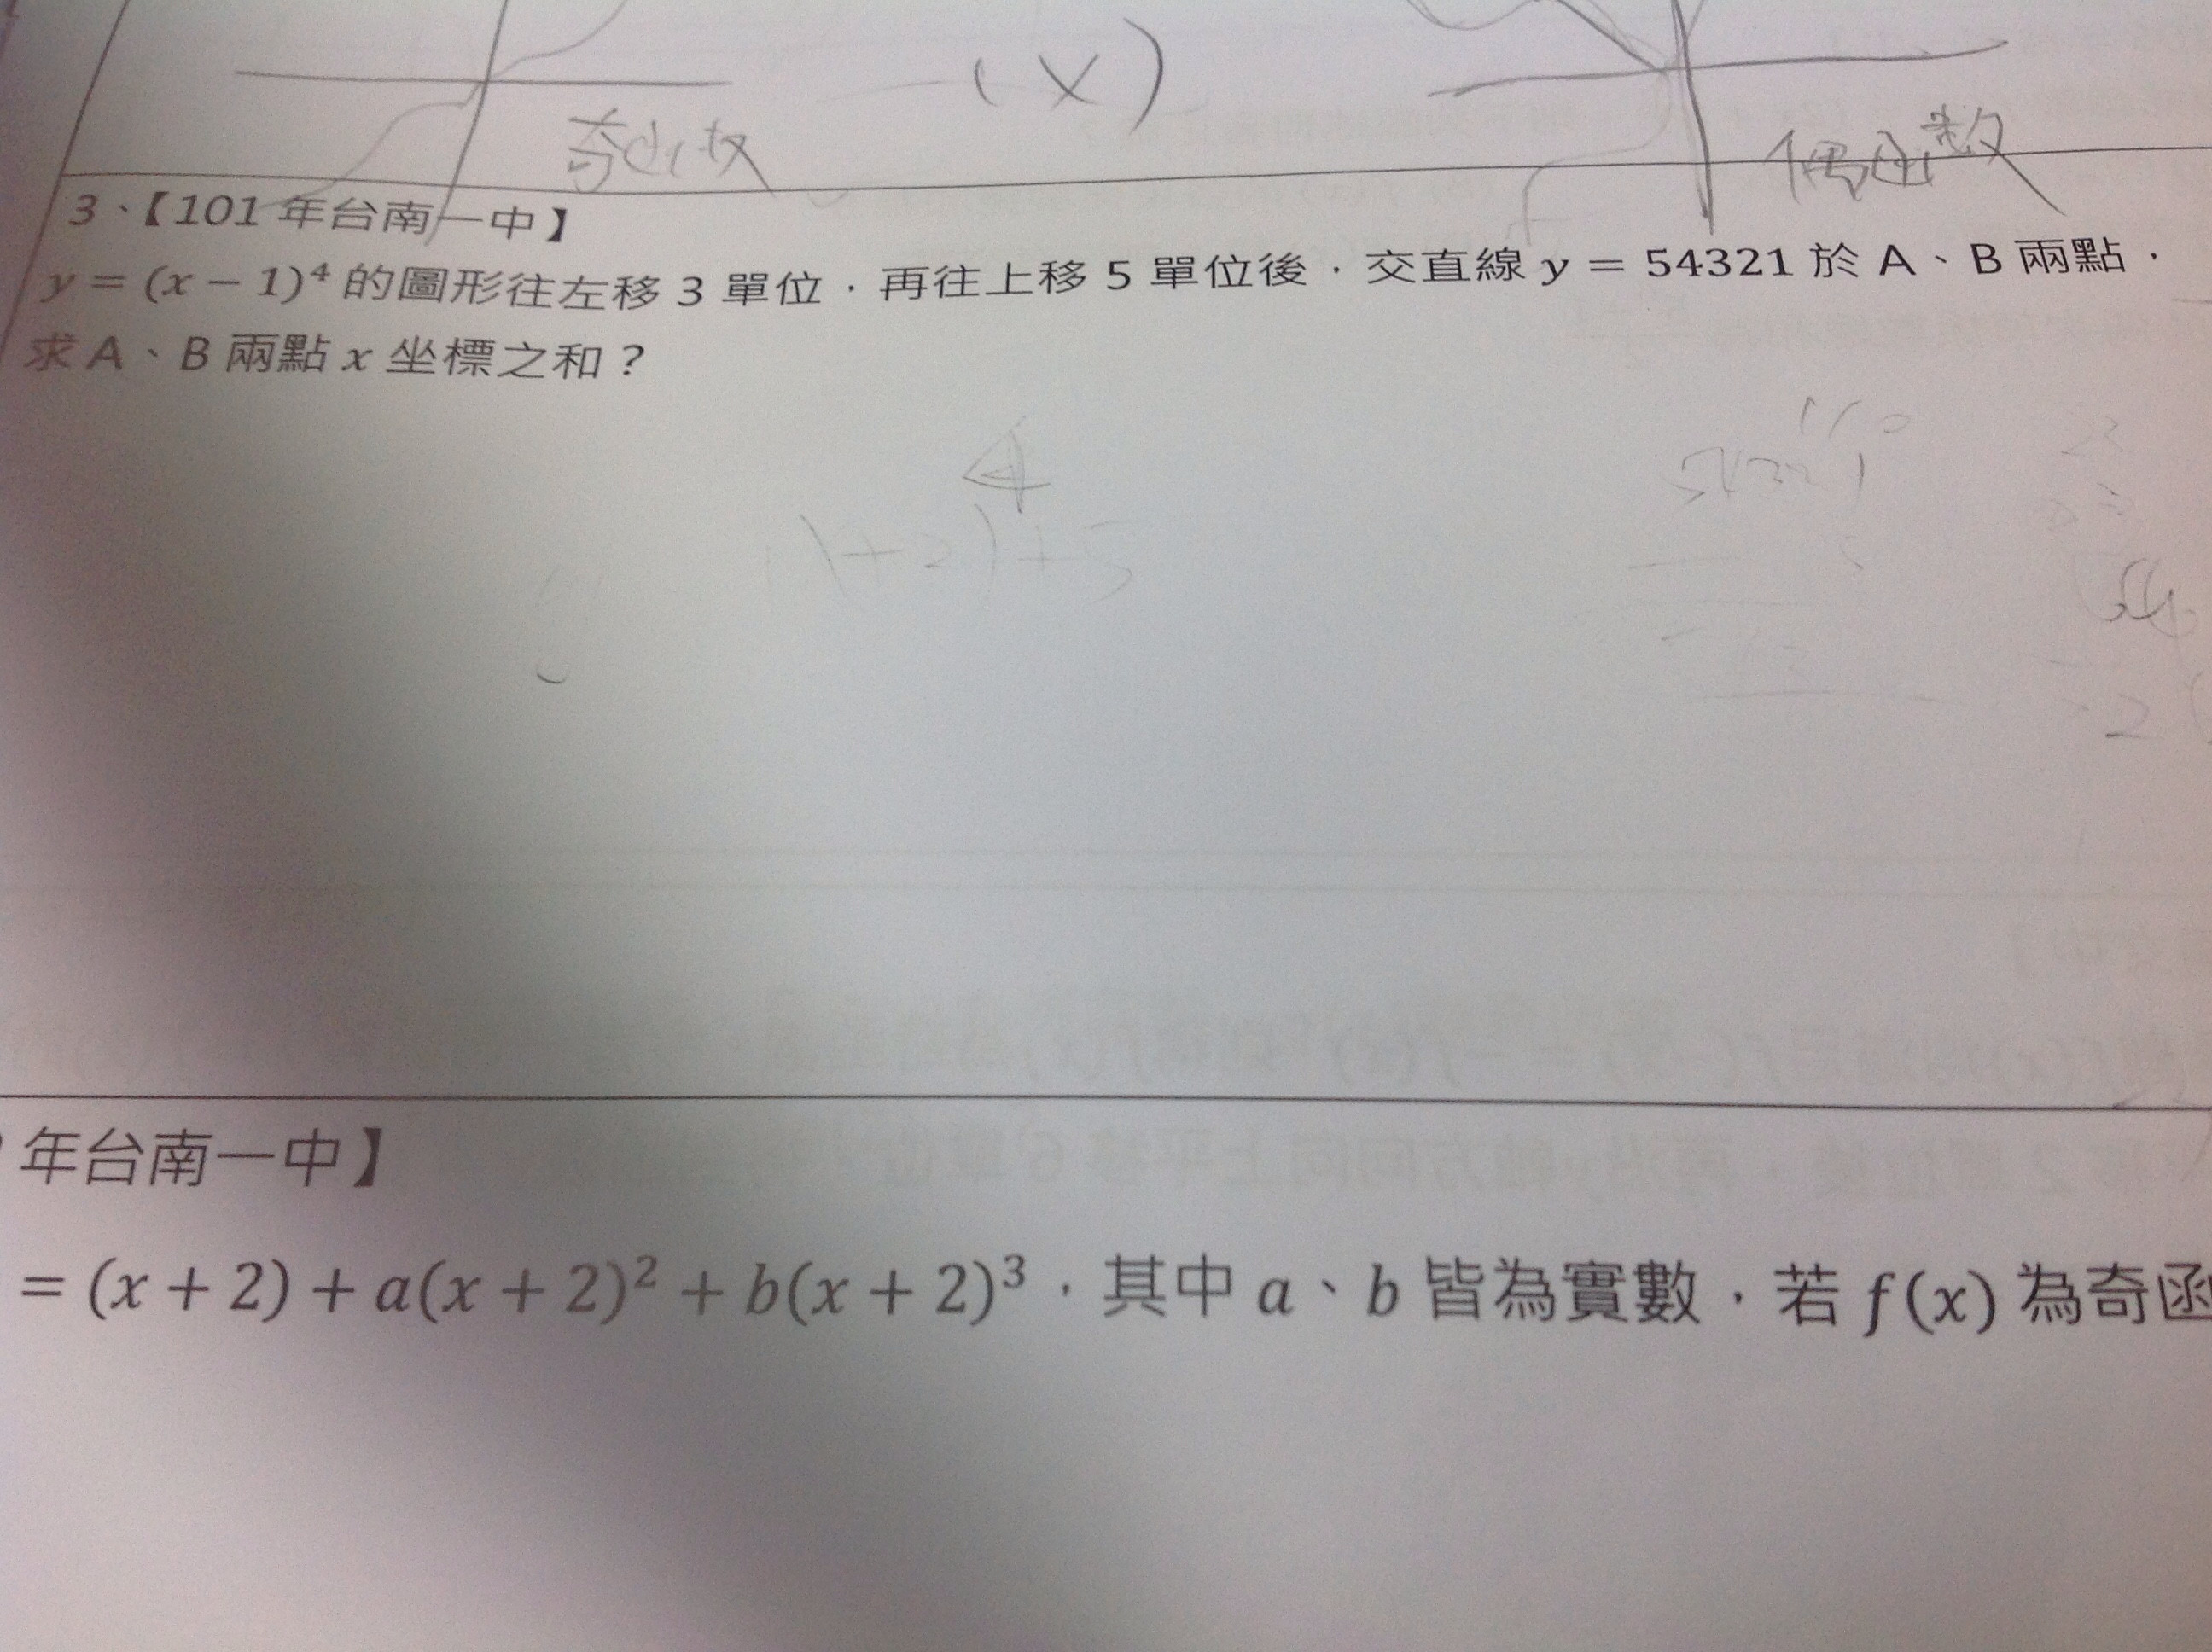 (x)
奇函数
偶函数
3、【101 年台南一中】
y = (x − 1)⁴ 的圖形往左移 3 單位，再往上移 5 單位後，交直線 y = 54321 於 A、B 兩點，
求 A、B 兩點 x 坐標之和？
4
+2)+5
54321
年台南一中】
= (x + 2) + a(x + 2)² + b(x + 2)³，其中 a、b 皆為實數，若 f(x) 為奇函